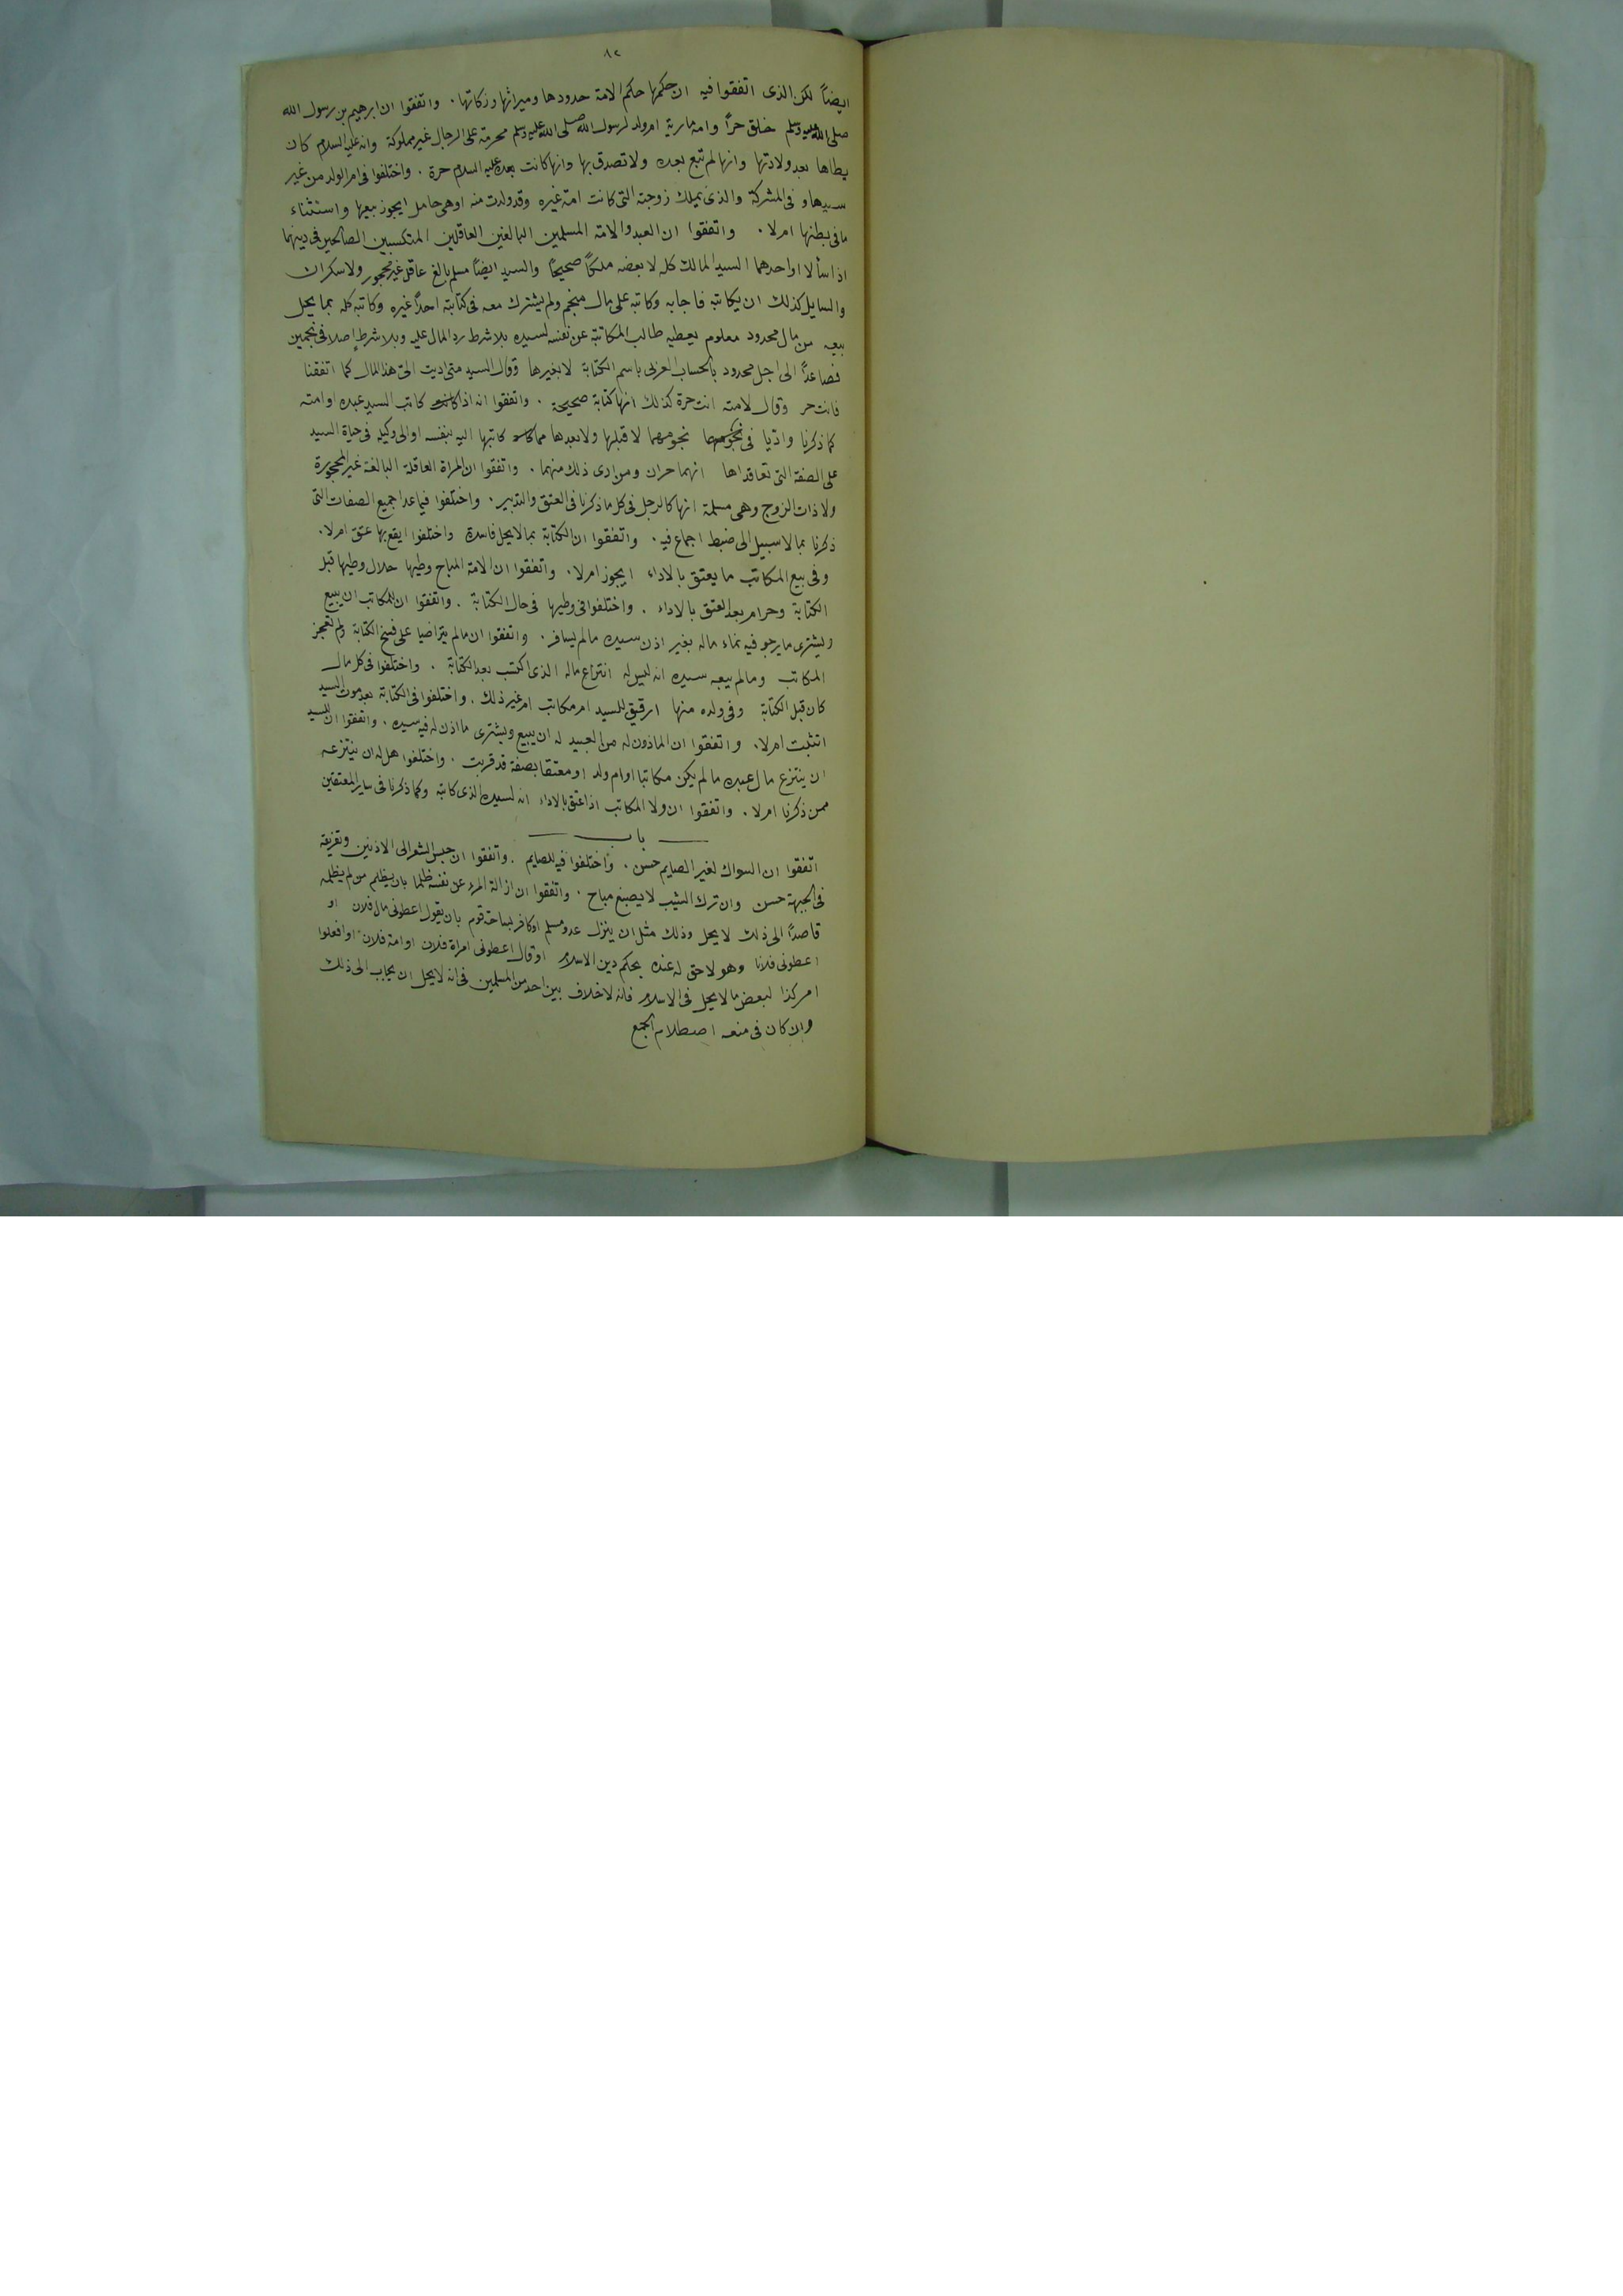 ٨٢
ايضاً لكن الذى اتفقوا فيه ان حكمها حكم الامة حدودها وميراثها وزكاتها . واتفقوا ان ابرهيم بن رسول الله
صلى الله عليه وسلم خلق حراً وامه مارية ام ولد لرسول الله صلى الله عليه وسلم محرمة على الرجال غير مملوكة وانه عليه السلام كان
يطاها بعد ولادتها وانها لم تبع بعده ولا تصدق بها وانها كانت بعده عليه السلام حرة . واختلفوا فى ام الولد من غير
سيدها و فى المشركة والذى يملك زوجته التى كانت امة غيره وقد ولدت منه او هى حامل ايجوز بيعها واستثناء
ما فى بطنها ام لا . واتفقوا ان العبد والامة المسلمين البالغين العاقلين المتكسبين الصالحين فى دينهما
اذا سألا او احدهما السيد المالك كله لا بعضه ملكاً صحيحاً والسيد ايضاً مسلم بالغ عاقل غير محجور ولا سكران
والسايل كذلك ان يكاتبه فاجابه وكاتبه على مال منجم ولم يشترك معه فى كتابته احداً غيره وكاتبه كله بما يحل
بيعه من مال محدود معلوم يعطيه طالب المكاتبة عن نفسه لسيده بلا شرط رد المال عليه وبلا شرط اصلا فى نجمين
فصاعداً الى اجل محدود بالحساب العربى باسم الكتابة لا بغيرها وقال السيد متى اديت الى هذا المال كما اتفقنا
فانت حر وقال لامته انت حرة كذلك انها كتابة صحيحة . واتفقوا انه اذا كانت كاتب السيد عبده او امته
كما ذكرنا واديا فى نجومها نجومهما لا قبلها ولا بعدها مما كان كاتبها اليه بنفسه او الى وكيله فى حياة السيد
على الصفة التى تعاقداها انهما حران ومن ادى ذلك منهما . واتفقوا ان المراة العاقلة البالغة غير المحجورة
ولا ذات الزوج وهى مسلمة انها كالرجل فى كل ما ذكرنا فى العتق والتدبير . واختلفوا فيما عدا جميع الصفات التى
ذكرنا بما لا سبيل الى ضبط اجماع فيه . واتفقوا ان الكتابة بما لا يحل فاسدة واختلفوا ايقع بها عتق ام لا .
وفى بيع المكاتب ما يعتق بالاداء ايجوز ام لا . واتفقوا ان الامة المباح وطيها حلال وطيها قبل
الكتابة وحرام بعد العتق بالاداء . واختلفوا فى وطيها فى حال الكتابة . واتفقوا ان للمكاتب ان يبيع
ويشترى ما يرجو فيه نماء ماله بغير اذن سيده ما لم يسافر . واتفقوا ان ما لم يتراضيا على فسخ الكتابة ولم تعجز
المكاتب وما لم يبعه سيده انه ليس له انتزاع ماله الذى اكتسب بعد الكتابة . واختلفوا فى كل مال
كان قبل الكتابة وفى ولده منها ارقيق للسيد ام مكاتب ام غير ذلك . واختلفوا فى الكتابة بعد موت السيد
اتثبت ام لا . واتفقوا ان الماذون له من العبيد له ان يبيع ويشترى ما اذن له فيه سيده . واتفقوا ان للسيد
ان ينتزع مال عبده ما لم يكن مكاتبا او ام ولد او معتقا بصفة قد قربت . واختلفوا هل له ان ينتزعه
ممن ذكرنا ام لا . واتفقوا ان ولا المكاتب اذا عتق بالاداء انه لسيده الذى كاتبه وكما ذكرنا فى ساير المعتقين
باب
اتفقوا ان السواك لغير الصايم حسن . واختلفوا فيه للصايم . واتفقوا ان حبس الشعر الى الاذنين وتفريقه
فى الجبهة حسن وان ترك الشيب لا يصبغ مباح . واتفقوا ان ازالة المرء عن نفسه ظلما بان يظلم من لم يظلمه
قاصداً الى ذلك لا يحل وذلك مثل ان ينزل عدو مسلم او كافر بساحة قوم بان يقول اعطونى مال فلان او
اعطونى فلانا وهو لا حق له عنده بحكم دين الاسلام او قال اعطونى امراة فلان او امة فلان او افعلوا
امر كذا لبعض ما لا يحل فى الاسلام فانه لا خلاف بين احد من المسلمين فى انه لا يحل ان يجاب الى ذلك
وان كان فى منعه اصطلام الجمع